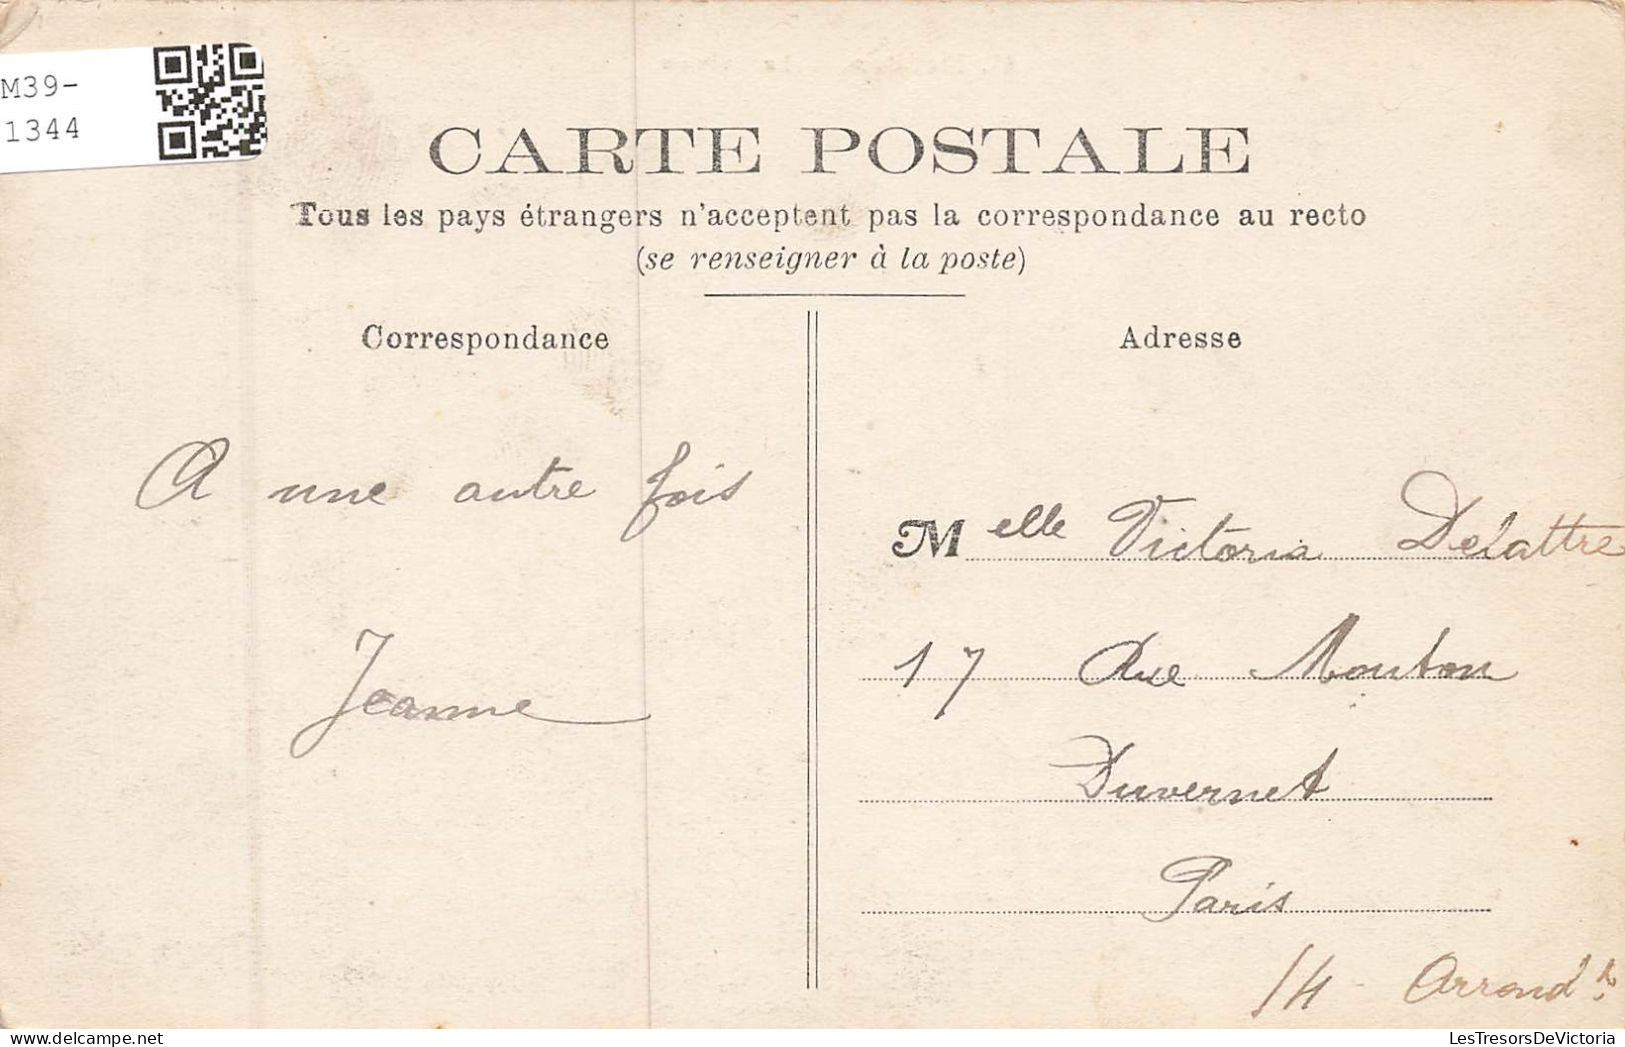 M39-
1344
CARTE POSTALE
Tous les pays étrangers n'acceptent pas la correspondance au recto
(se renseigner à la poste)
Correspondance
A une autre fois
Jeanne
Adresse
Melle Victoria Delattre
17 Rue Mouton
Duvernet
Paris
14 Arrondt
LesTresorsDeVictoria